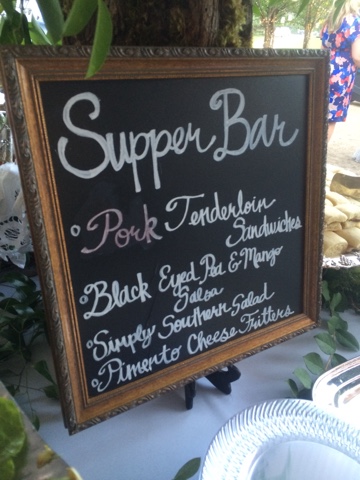 Supper Bar
° Pork Tenderloin
Sandwiches
° Black Eyed Pea & Mango
Salsa
° Simply Southern Salad
° Pimento Cheese Fritters